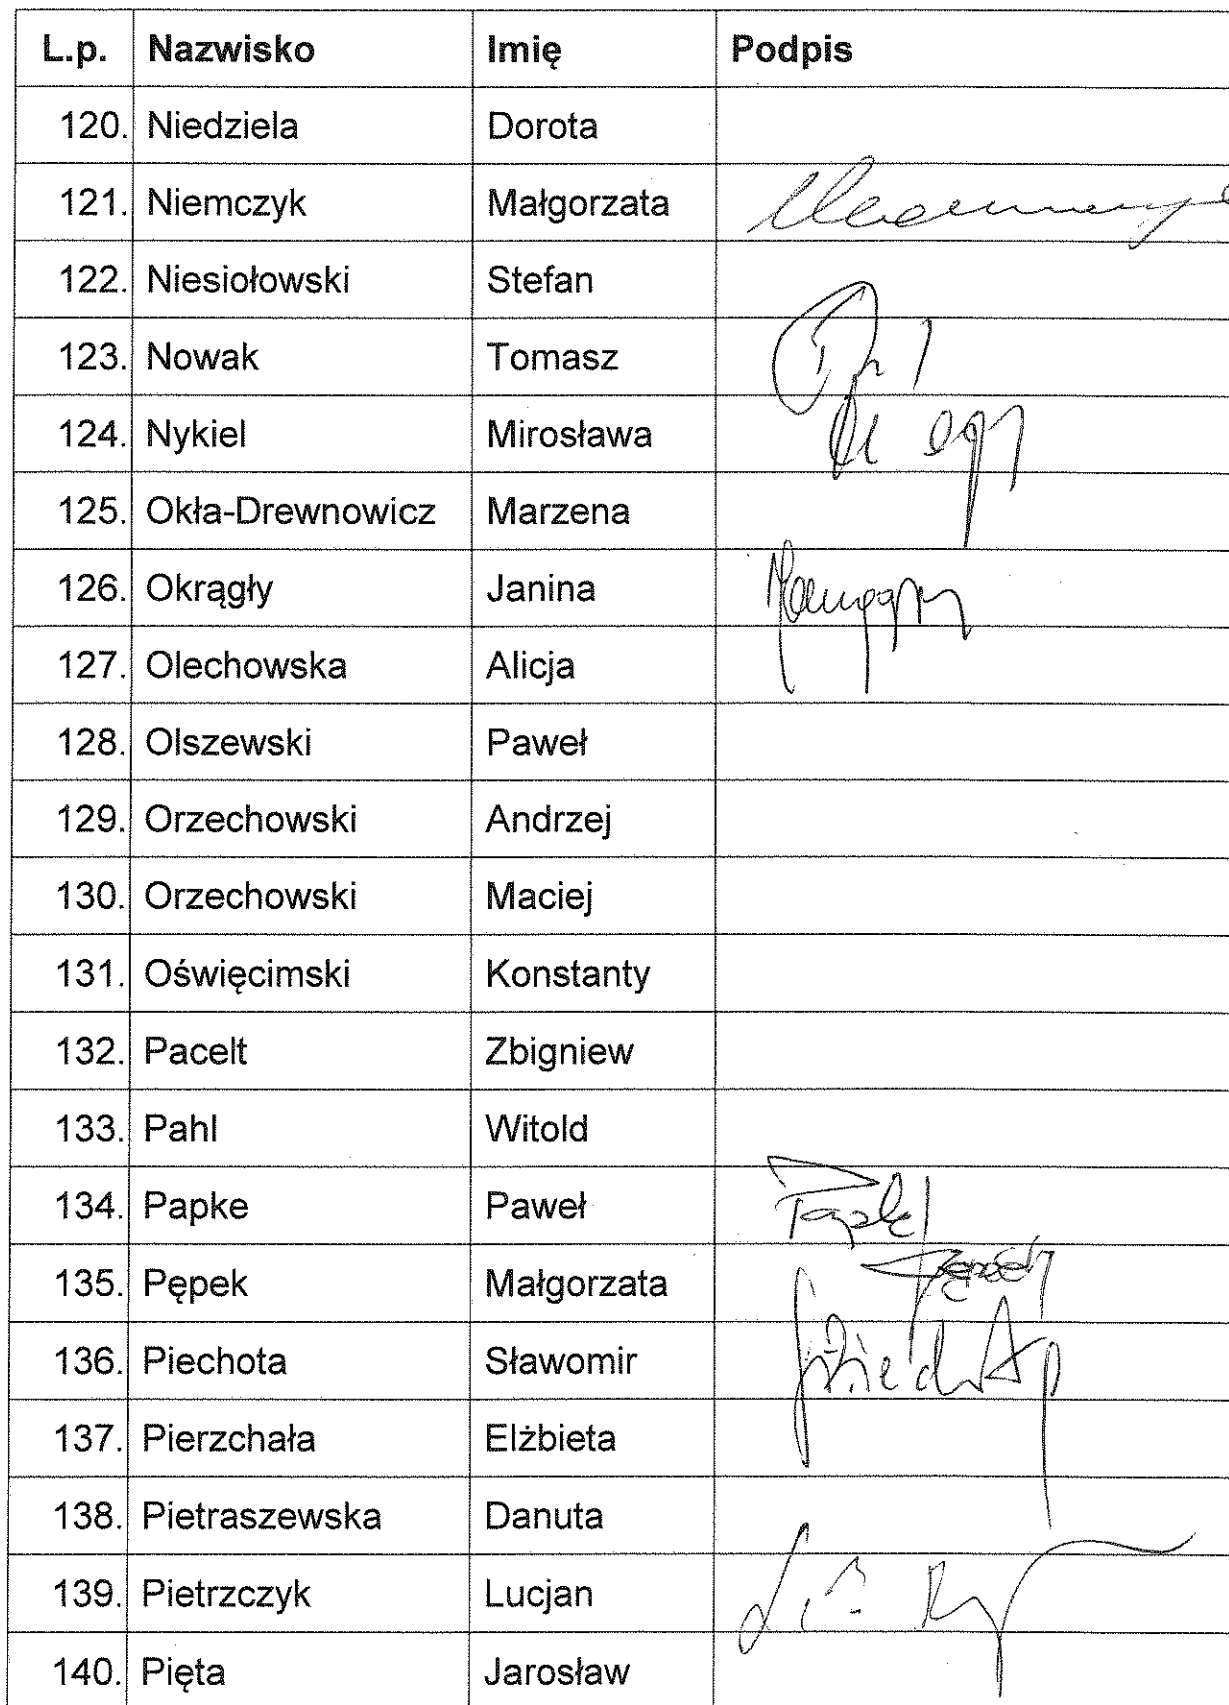 L.p. Nazwisko Imię Podpis
120. Niedziela Dorota
121. Niemczyk Małgorzata
122. Niesiołowski Stefan
123. Nowak Tomasz
124. Nykiel Mirosława
125. Okła-Drewnowicz Marzena
126. Okrągły Janina
127. Olechowska Alicja
128. Olszewski Paweł
129. Orzechowski Andrzej
130. Orzechowski Maciej
131. Oświęcimski Konstanty
132. Pacelt Zbigniew
133. Pahl Witold
134. Papke Paweł
135. Pępek Małgorzata
136. Piechota Sławomir
137. Pierzchała Elżbieta
138. Pietraszewska Danuta
139. Pietrzczyk Lucjan
140. Pięta Jarosław